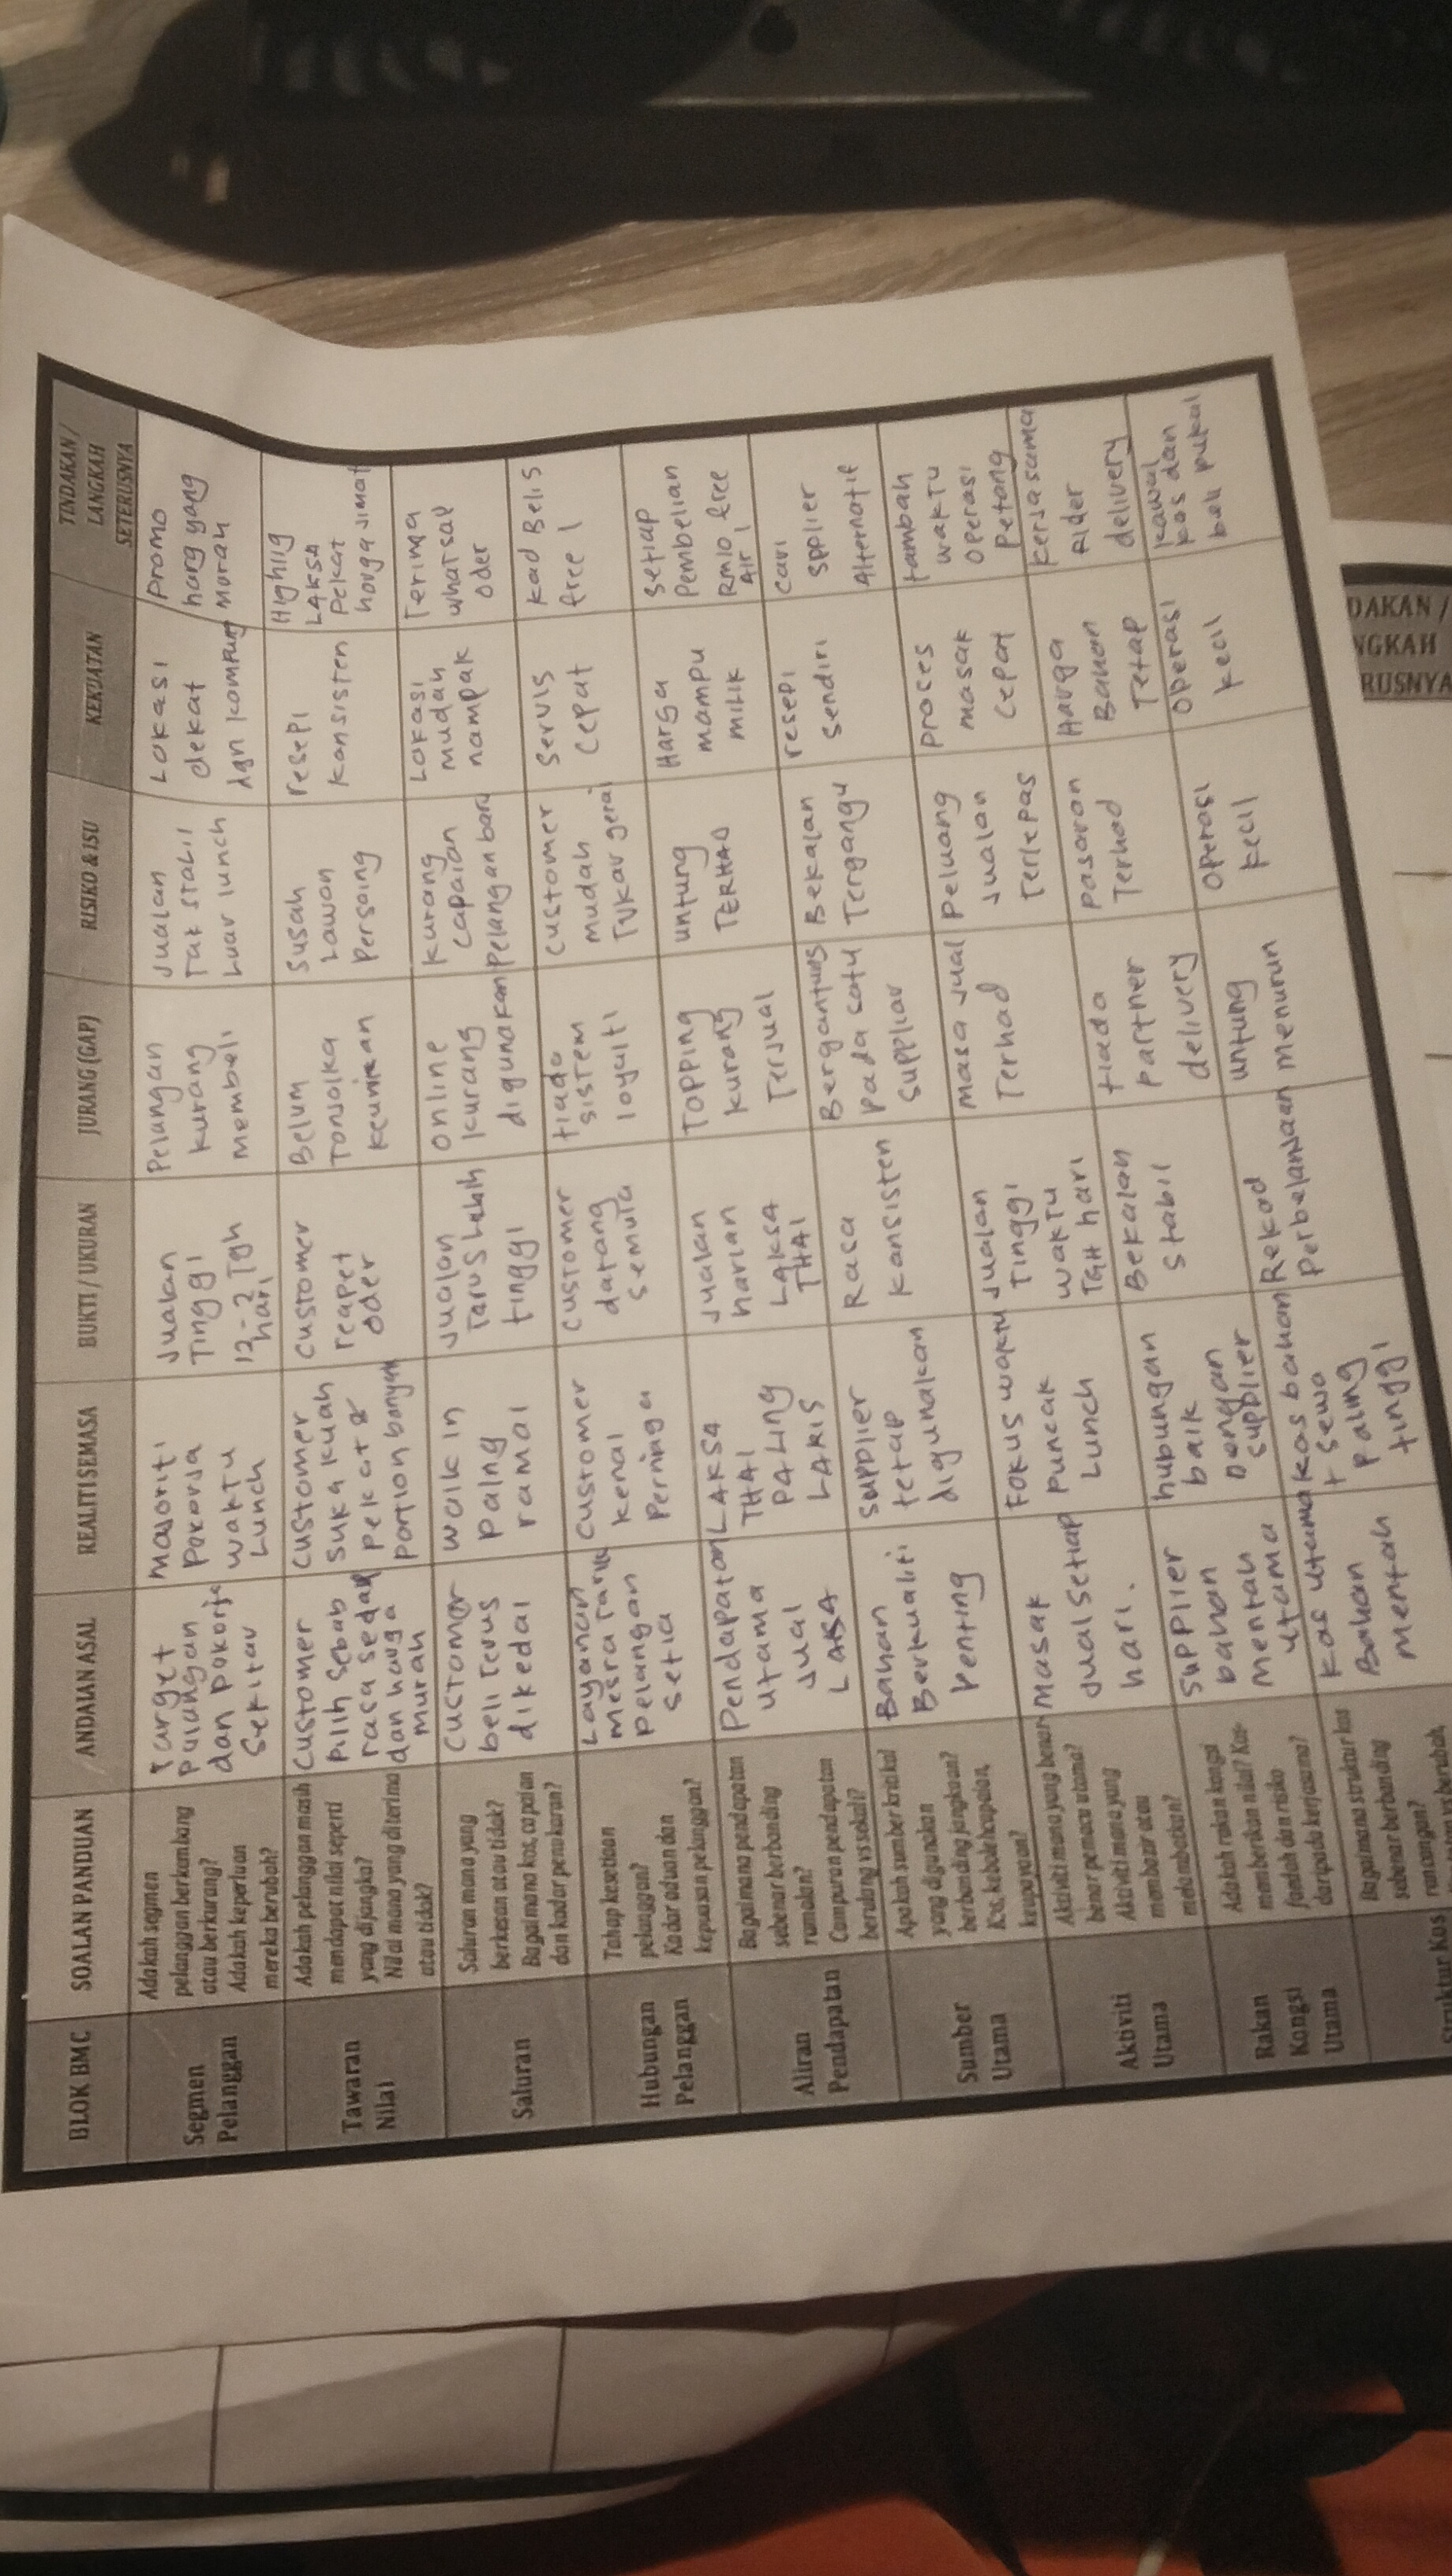 BLOK BMC
SOALAN PANDUAN
ANDAIAN ASAL
REALITI SEMASA
BUKTI / UKURAN
JURANG (GAP)
RISIKO & ISU
KEKUATAN
TINDAKAN /
LANGKAH
SETERUSNYA
Segmen
Pelanggan
Adakah segmen
pelanggan berkembang
atau berkurang?
Adakah keperluan
mereka berubah?
Target
dan pekerja
sekitar
majoriti
Pekerja
waktu
Lunch
Jualan
Tinggi
12-2 Tgh
hari
Pelangan
kurang
membeli
Jualan
Tak stabil
Luar lunch
Lokasi
dekat
dgn kompung
promo
harg yang
murah
Tawaran
Nilai
Adakah pelanggan masih
mendapat nilai seperti
yang dijangka?
Nilai mana yang diterima
atau tidak?
customer
pilih sebab
rasa sedap
dan harga
murah
customer
suka kuah
pekat &
portion banyak
customer
reapet
oder
Belum
Tonjolka
keunikan
susah
Lawan
Persaing
resepi
konsisten
Highlig
Laksa
Pekat
harga jimat
Saluran
Saluran mana yang
berkesan atau tidak?
Bagaimana kos, capaian
dan kadar penukaran?
customer
beli Terus
dikedai
walk in
paling
ramai
Jualan
Tarus Lebih
tinggi
online
kurang
digunakan
kurang
capaian
pelangan baru
Lokasi
mudah
nampak
Terima
whatsap
oder
Hubungan
Pelanggan
Tahap kesetiaan
pelanggan?
Kadar aduan dan
kepuasan pelanggan?
Layanan
mesra Tarik
pelangan
setia
customer
kenal
Peniaga
customer
datang
semula
tiada
sistem
loyalti
customer
mudah
Tukar gerai
servis
cepat
kad Beli 5
free 1
Aliran
Pendapatan
Bagaimana pendapatan
sebenar berbanding
ramalan?
Campuran pendapatan
berulang vs sekali?
Pendapatan
utama
Jual
LAKSA
LAKSA
THAI
PALING
LAKIS
Jualan
harian
Laksa
THAI
TOPPING
kurang
Terjual
untung
TERHAD
Harga
mampu
milik
setiap
Pembelian
RM10, free
Air 1
Sumber
Utama
Apakah sumber kritikal
yang digunakan
berbanding jangkaan?
Kos, kebolehcapaian,
keupayaan?
Bahan
Berkualiti
Penting
supplier
tetap
digunakan
Rasa
Konsisten
Bergantung
pada satu
suppliar
Bekalan
Tergangu
resepi
sendiri
cari
spplier
Alternatif
Aktiviti
Utama
Aktiviti mana yang benar-
benar pemacu utama?
Aktiviti mana yang
membazir atau
melambatkan?
masak
Jual setiap
hari.
Fokus waktu
puncak
Lunch
Jualan
Tinggi
waktu
TGH hari
masa jual
Terhad
peluang
Jualan
Terlepas
proses
masak
cepat
tambah
waktu
operasi
petang
Rakan
Kongsi
Utama
Adakah rakan kongsi
memberikan nilai? Kos-
faedah dan risiko
daripada kerjasama?
supplier
bahan
mentah
utama
hubungan
baik
Dengan
supplier
Bekalan
stabil
tiada
partner
delivery
pasaran
Terhad
Harga
Bahan
Tetap
kerjasama
Rider
delivery
Struktur Kos
Bagaimana struktur kos
sebenar berbanding
rancangan?
kos utama
Bahan
mentah
kos bahan
+ sewa
paling
tinggi
Rekod
Perbelanjaan
untung
menurun
operasi
kecil
operasi
kecil
kawal
kos dan
beli pukal
DAKAN /
NGKAH
RUSNYA